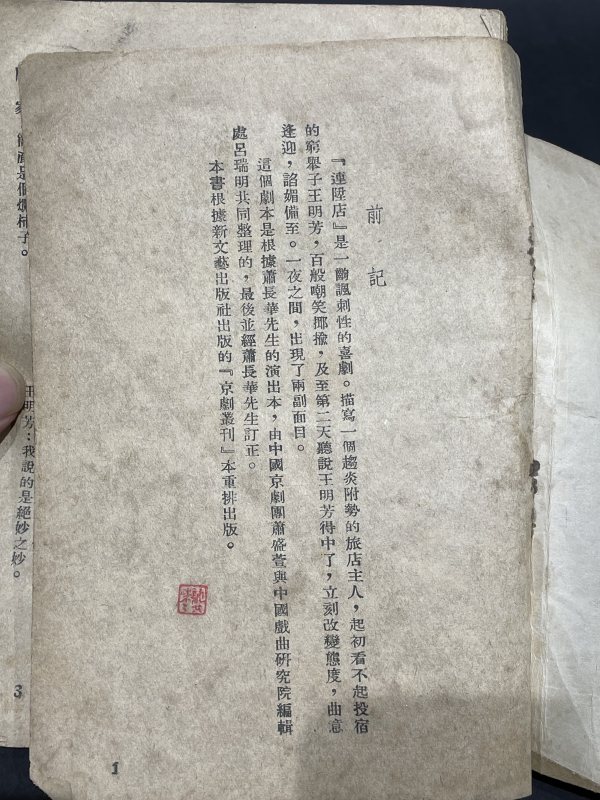 前記
『連陞店』是一齣諷刺性的喜劇。描寫一個趨炎附勢的旅店主人，起初看不起投宿
的窮舉子王明芳，百般嘲笑揶揄，及至第二天聽說王明芳得中了，立刻改變態度，曲意
逢迎，諂媚備至。一夜之間，出現了兩副面目。
這個劇本是根據蕭長華先生的演出本，由中國京劇團蕭盛萱與中國戲曲研究院編輯
處呂瑞明共同整理的，最後並經蕭長華先生訂正。
本書根據新文藝出版社出版的『京劇叢刊』本重排出版。
1
王明芳：我說的是絕妙之妙。
3